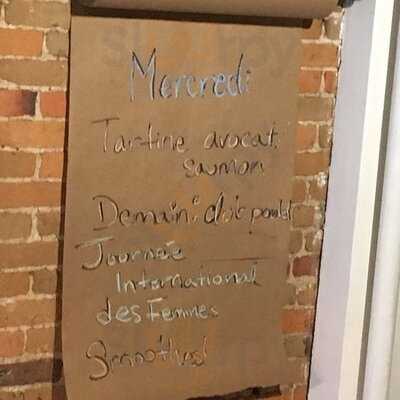 Mercredi
Tartine avocat
saumon
Demain: club poulet
Journée
International
des Femmes
Smoothies!